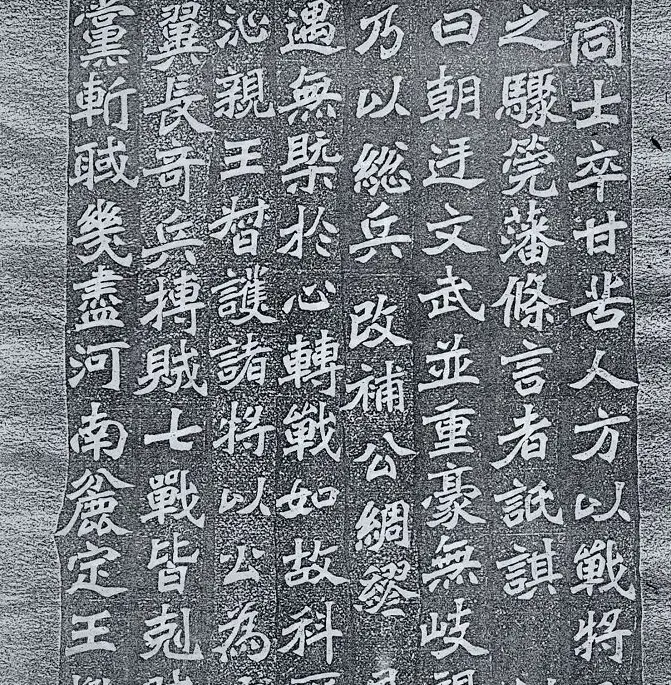 同士卒甘苦人方以戰將
之驟筦藩條言者詆諆
曰朝廷文武並重豪無岐視
乃以總兵改補公綢繆
遇無槩於心轉戰如故科
沁親王督護諸將以公為
翼長奇兵搏賊七戰皆剋
黨斬馘幾盡河南麤定王